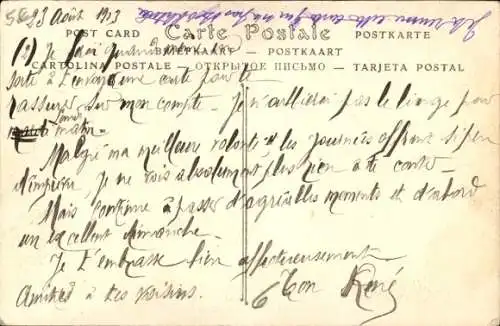 23 Août 1913
POST CARD Carte Postale POSTKARTE
BRIEFKAART — POSTKAART
CARTOLINA POSTALE — ОТКРЫТОЕ ПИСЬМО — TARJETA POSTAL
(2) Je
sorte à t'envoyer une carte pour te
rassurer sur mon compte. Je n'oublierai pas le linge pour
matin.
Malgré ma meilleure volonté, les journées offrant si peu
d'imprévu, je ne vois absolument plus rien à te conter.
Mais continue à passer d'agréables moments et d'abord
un excellent dimanche.
Je t'embrasse bien affectueusement
Ton René
Amitiés à tes voisins.